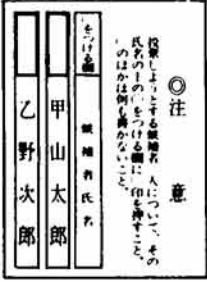 ◎注意
投票しようとする候補者 人について、その
氏名の上の をつける欄に 印を押すこと。
のほかは何も書かないこと。
をつける欄
候補者氏名
甲山太郎
乙野次郎